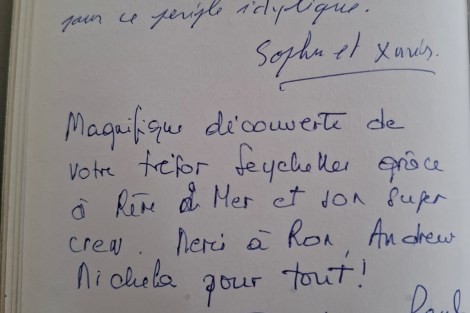 pour ce périple idyllique.
Sophie et Xavier.
Magnifique découverte de
votre trésor Seychelles grâce
à Rêve de Mer et son super
crew. Merci à Ron, Andrew
Michela pour tout!
Paul